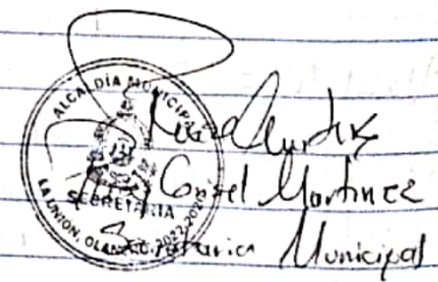 ALCALDÍA MUNICIPAL
SECRETARIA
LA UNION, OLANCHO, 2022-2026
Martinez
Secretaria Municipal